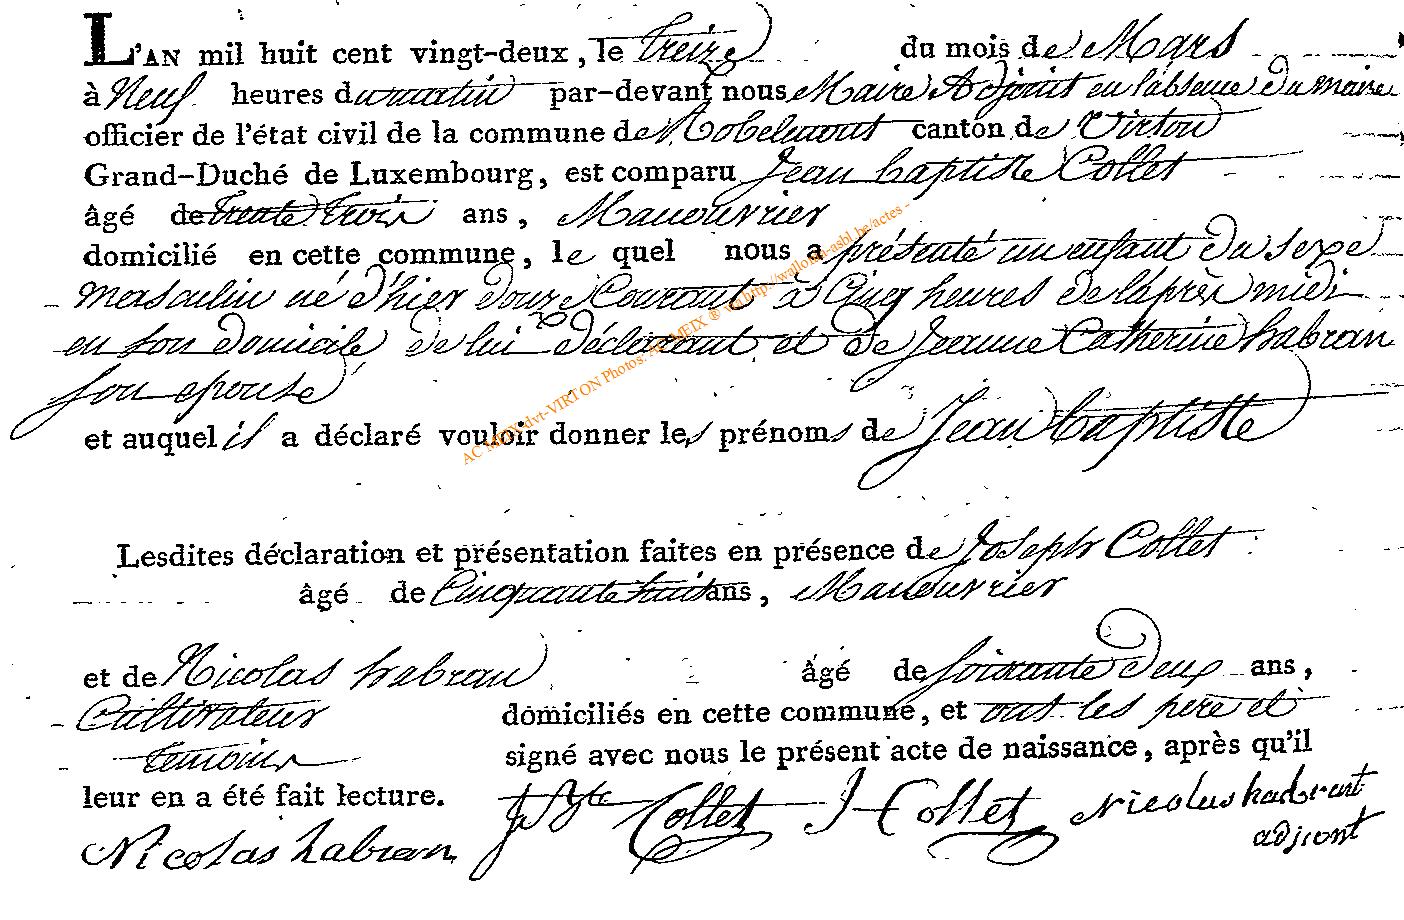 L'AN mil huit cent vingt-deux, le treize du mois de Mars
à Neuf heures du matin par-devant nous Maire Adjoint en l'absence du maire
officier de l'état civil de la commune de Robelmont canton de Virton
Grand-Duché de Luxembourg, est comparu Jean baptiste Collet
âgé de trente trois ans, Manouvrier
domicilié en cette commune, le quel nous a présenté un enfant du sexe
masculin né d'hier douze Courant à Cinq heures de l'après midi
en son domicile de lui déclarant et de Jeanne Catherine habran
son epouse
et auquel il a déclaré vouloir donner les prénoms de Jean baptiste
AC MEIX-dvt-VIRTON Photos: AC MEIX ® via http://wallonia-asbl.be/actes -
Lesdites déclaration et présentation faites en présence de Joseph Collet
âgé de Cinquante huit ans, Manouvrier
et de Nicolas habran âgé de soixante deux ans,
Cultivateur domiciliés en cette commune, et ont les pere et
temoins signé avec nous le présent acte de naissance, après qu'il
leur en a été fait lecture. J Bte Collet J Collet Nicolas habrant
Nicolas habran adjiont